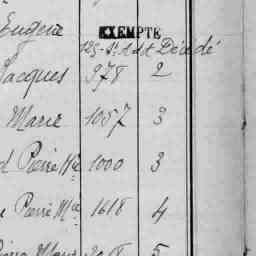 Eugène
EXEMPTE
Décédé
Jacques 978 2
Marie 1057 3
Pierre 1000 3
Pierre Mie 1618 4
5